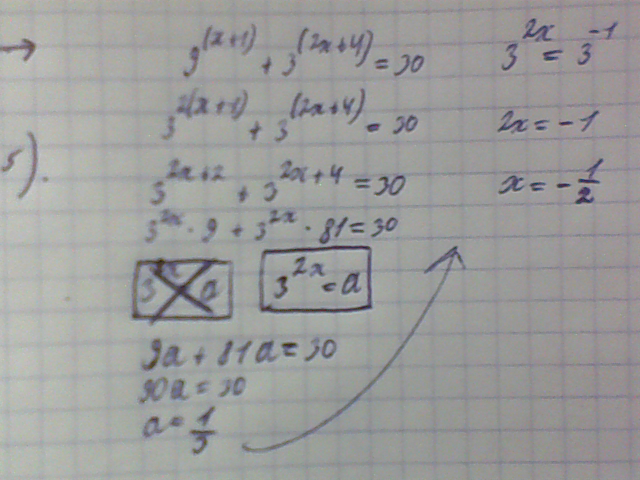 →
9^(x+1) + 3^(2x+4) = 30
3^2(x+1) + 3^(2x+4) = 30
5).
3^2x+2 + 3^2x+4 = 30
3^2x · 9 + 3^2x · 81 = 30
3^2x = a
9a + 81a = 30
90a = 30
a = 1/3
3^2x = 3^-1
2x = -1
x = -1/2